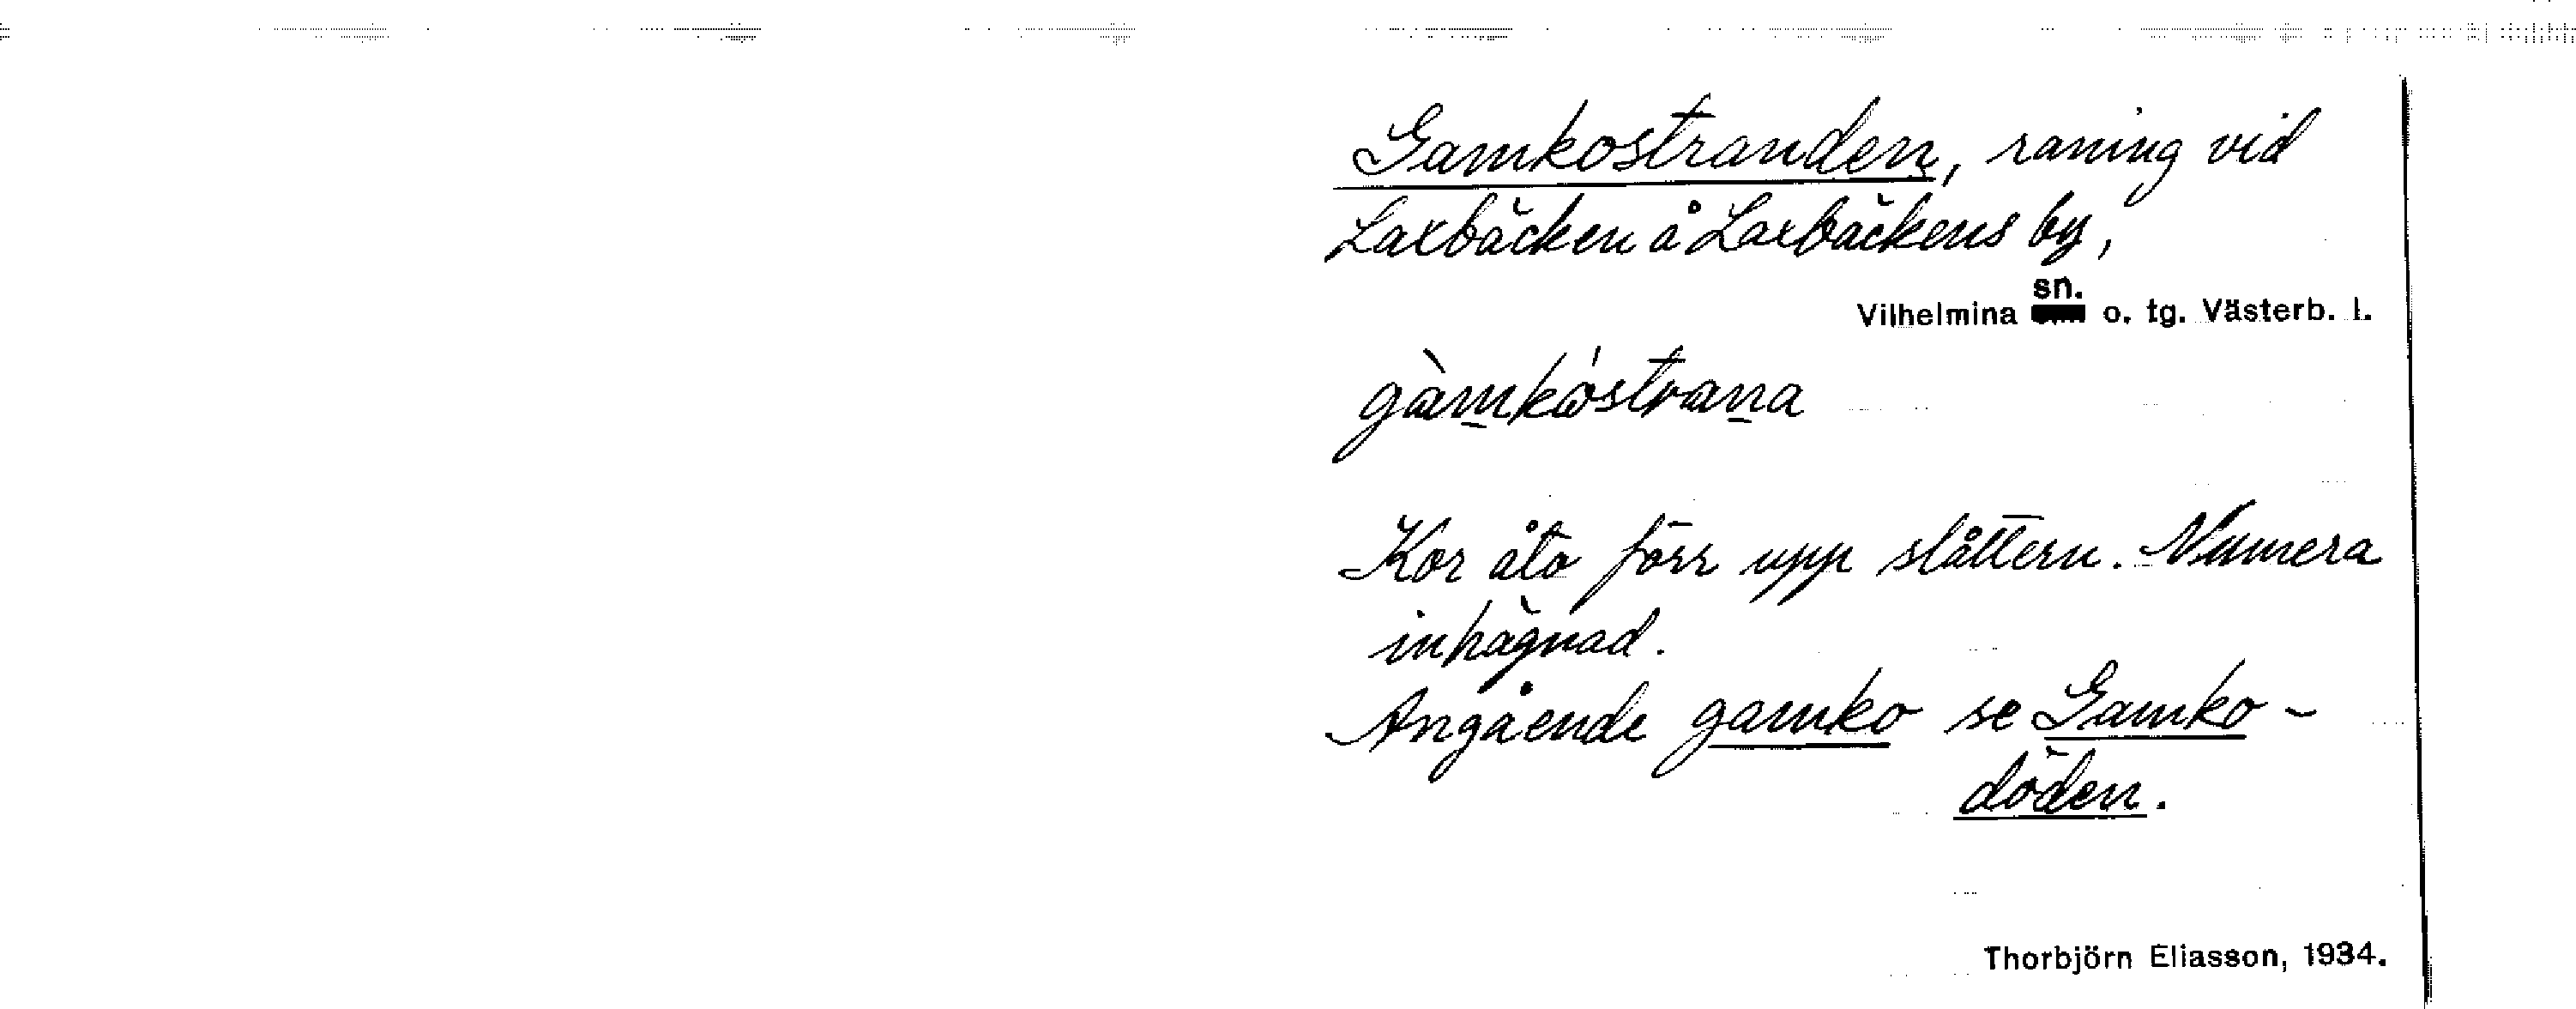 Gamkostranden, raning vid
Laxbäcken å Laxbäckens by,
sn.
Vilhelmina o. tg. Västerb. l.
gàmkóstrana
Kor åto förr upp slåttern. Numera
inhägnad.
Angående gamko se Gamko-
döden.
Thorbjörn Eliasson, 1934.